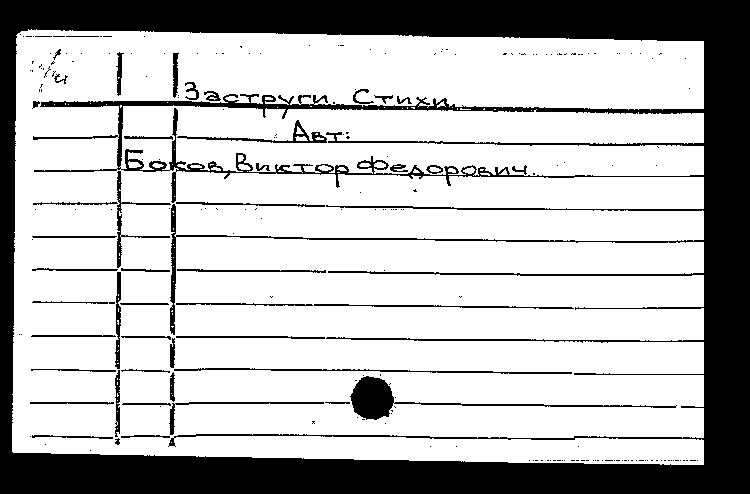 Заструги. Стихи.
Авт:
Боков, Виктор Федорович.